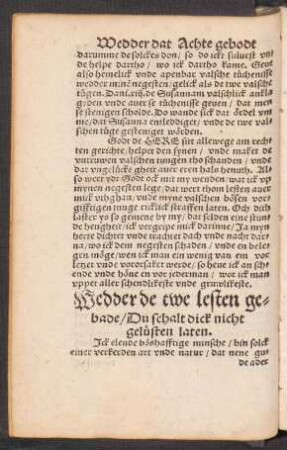 Wedder dat Achte gebodt
darumme de solckes don/ so do ickt suluest vnd
de helpe dartho/ wo ick dartho kame. Geue
also hemelick vnde apenbar valsche tüchenisse
wedder minē negesten/ gelick als de twe valsche
tügen. Dani.xiij. de Susannam valschlick ankla
geden vnde auer se tüchenisse geuen/ dat men
se stenigen scholde. Do wande sick dat ördel vm
me/ dat Susanna entleddiget/ vnde de twe val
schen tüge gesteniget wörden.
Godt de HERE sitt allewege am rech
ten gerichte/ helpet den synen/ vnde maket de
vntruwen valschen tungen tho schanden/ vnde
dat vngelücke gheit auer eren hals henuth. Al
so wert ydt Godt ock mit my wenden/ wat ick vp
mynen negesten lege/ dat wert thom lesten auer
mick vthghan/ vnde myne valschen bösen vor
gifftigen tunge
laster ys so gemene by my/ dat selden eine stun
de hengheit/ ick vorgripe mick darinne/ Ja myn
herte dichtet vnde trachtet dach vnde nacht dar
na/ wo ick dem negesten schaden/ vnde en bele
gen möge/ wen ick man ein wenig van em vor
letzet vnde vororsaket werde/ so heue ick an sche
ende vnde höne en vor jederman/ wor ick man
vppet aller schendlikeste vnde gruwlikeste.
Wedder de twe lesten ge-
bade/ Du schalt dick nicht
gelüsten laten.
Ick elende böshafftige minsche/ bin solck
einer vorkerden art vnde natur/ dat nene gu-
de ader